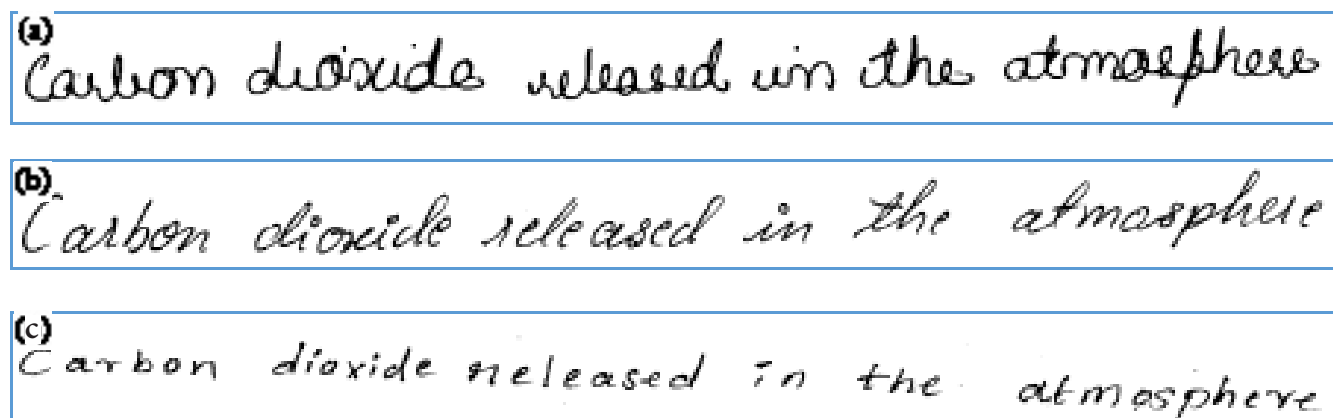 (a)
Carbon dioxide released in the atmosphere
(b)
Carbon dioxide released in the atmosphere
(c)
Carbon dioxide released in the atmosphere